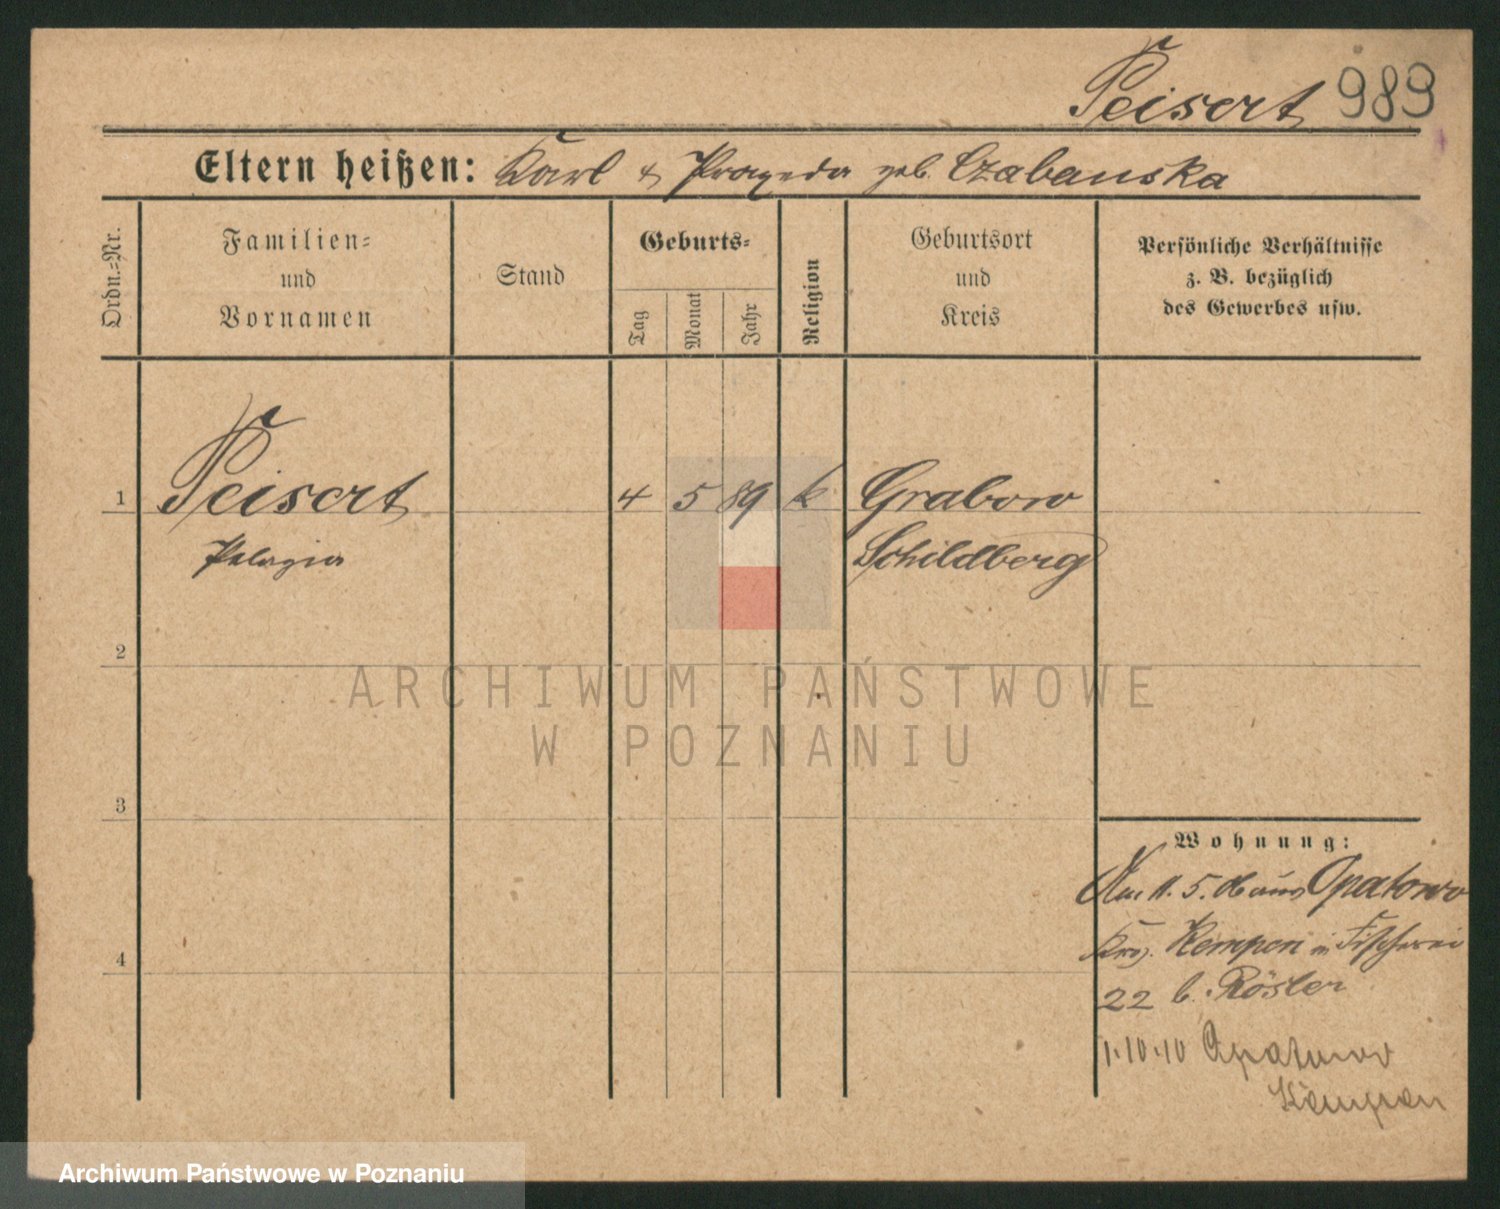 Peisert 989
Eltern heißen: Karl & Praxeda geb. Czabanska
Ordn.=Nr.
Familien=
und
Vornamen
Stand
Geburts=
Tag
Monat
Jahr
Religion
Geburtsort
und
Kreis
Persönliche Verhältnisse
z. B. bezüglich
des Gewerbes usw.
1 Peisert 4 5 89 k Grabow
Pelagia Schildberg
2
ARCHIWUM PAŃSTWOWE
W POZNANIU
3
Wohnung:
11. 5. 06 aus Opatowo
Krs. Kempen in Fischerei
4
22 b. Rösler
1.10.10 Opatowo
Kempen
Archiwum Państwowe w Poznaniu